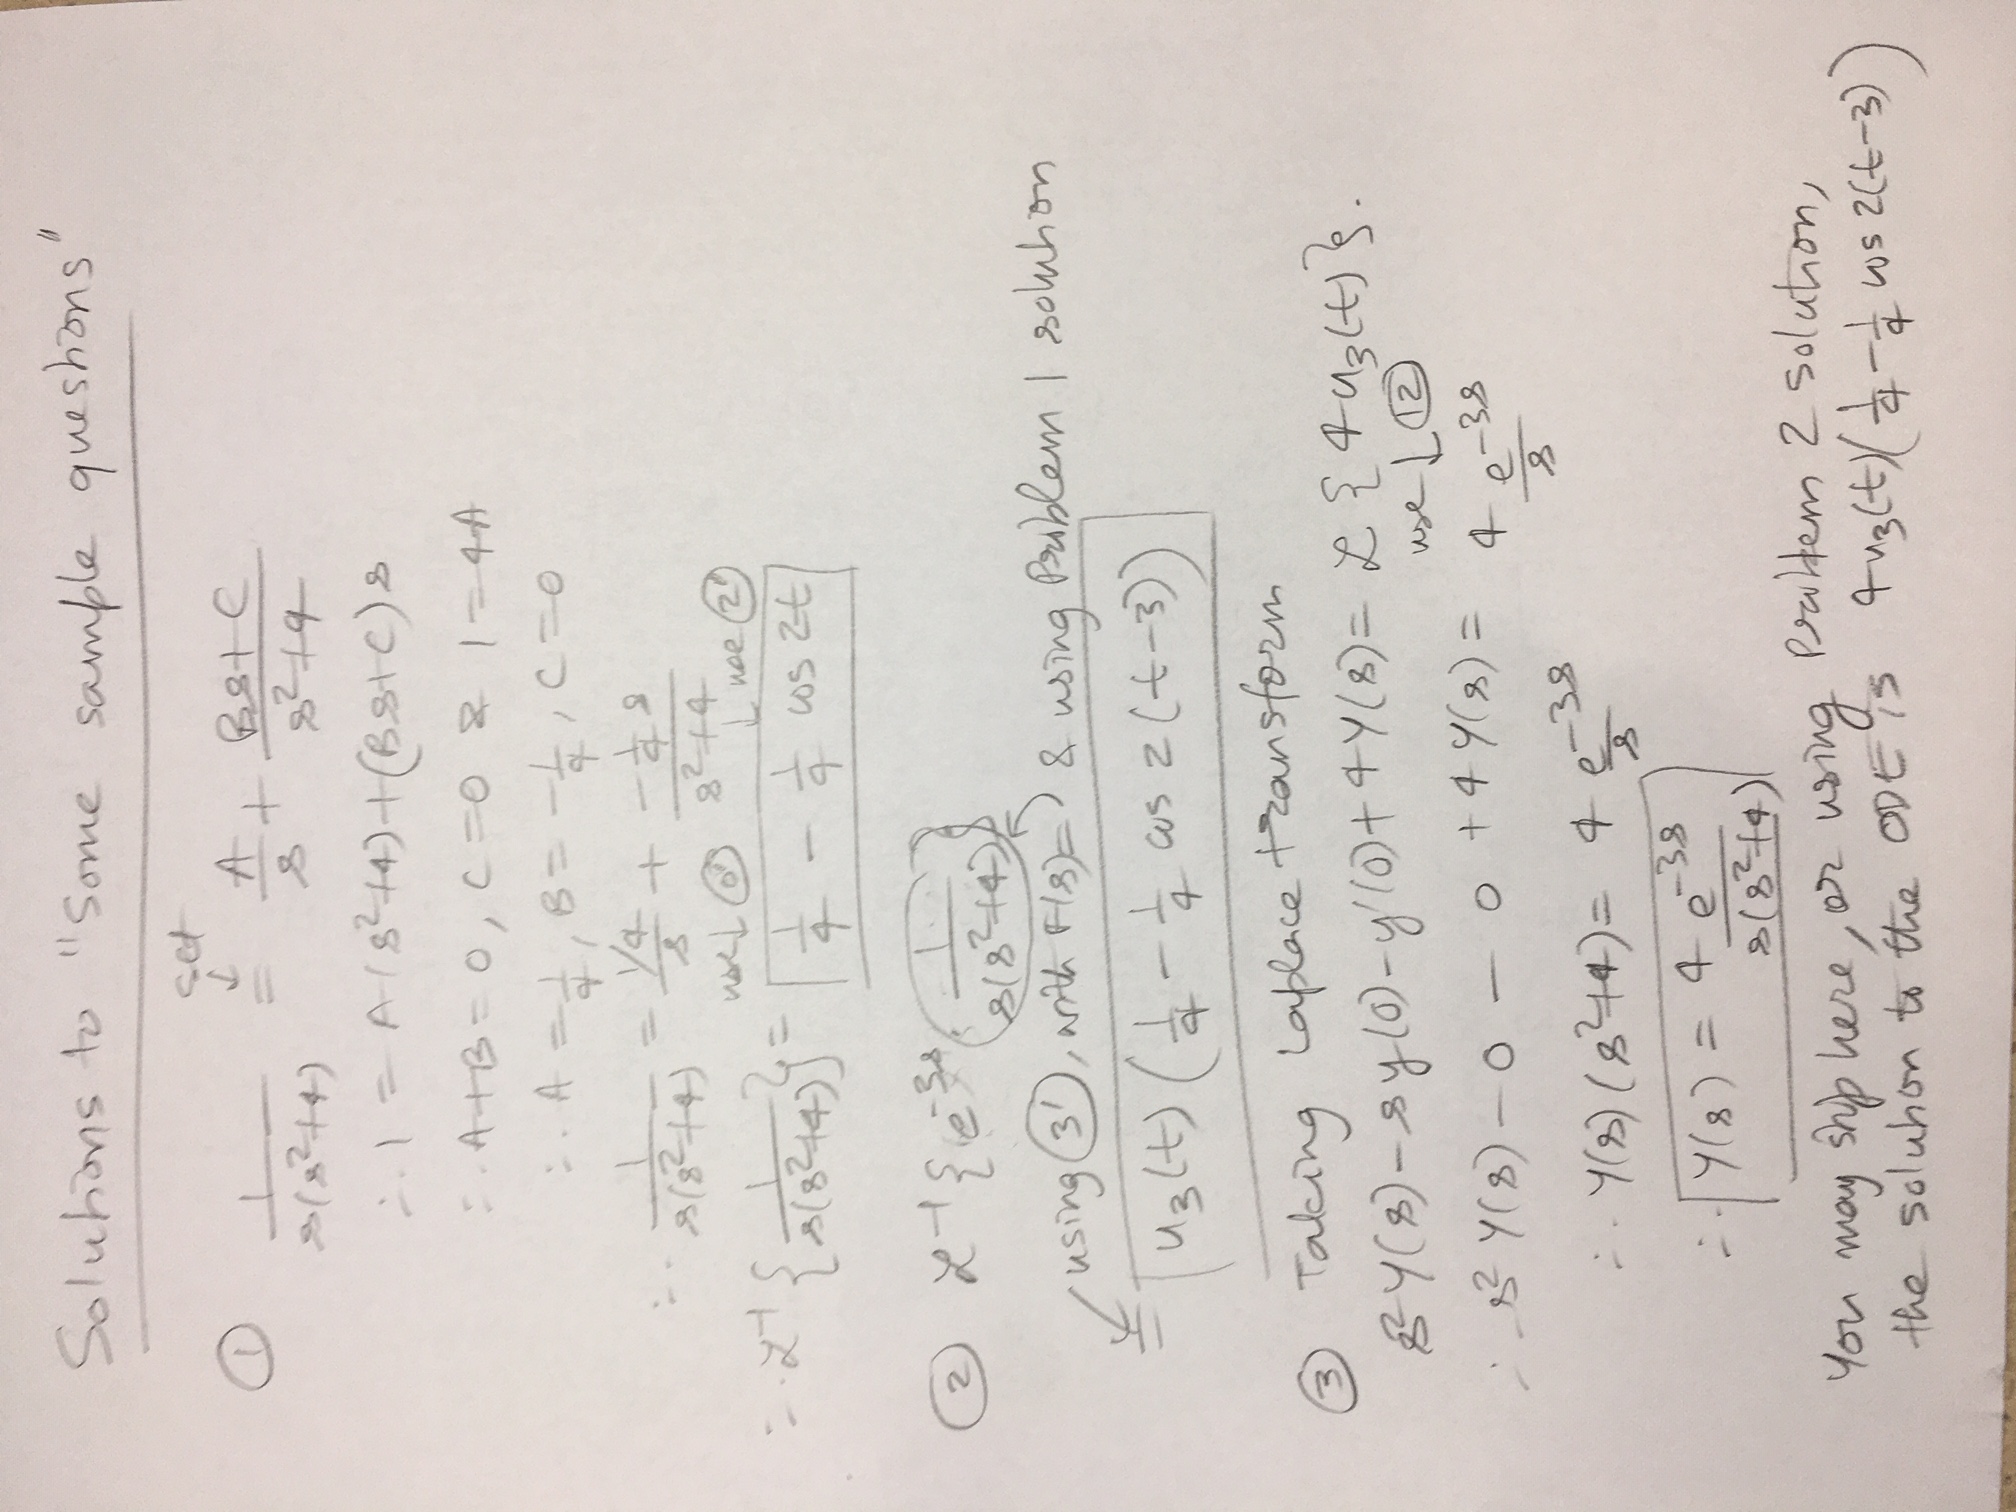 Solutions to "Some sample questions"
① 1/s(s²+4) =(set ↓) A/s + (Bs+C)/(s²+4)
∴ 1 = A(s²+4)+(Bs+C)s
∴ A+B=0, C=0 & 1=4A
∴ A=1/4, B=-1/4, C=0
∴ 1/s(s²+4) = (1/4)/s + (-1/4 s)/(s²+4)
use ↓ ⓪' ↓ use ②'
∴ ℒ⁻¹{1/s(s²+4)} = 1/4 - 1/4 cos 2t
② ℒ⁻¹{e^-3s · (1/s(s²+4))}
using ③', with F(s)= & using Problem 1 solution
= u₃(t)(1/4 - 1/4 cos 2(t-3))
③ Taking Laplace transform
s²Y(s)-sy(0)-y'(0)+4Y(s)= ℒ{4u₃(t)}.
use ↓ ⑫
∴ s²Y(s)-0-0+4Y(s)= 4 e^-3s/s
∴ Y(s)(s²+4)= 4 e^-3s/s
∴ Y(s) = 4 e^-3s/s(s²+4)
You may stop here, or using Problem 2 solution,
the solution to the ODE is 4u₃(t)(1/4 - 1/4 cos 2(t-3))